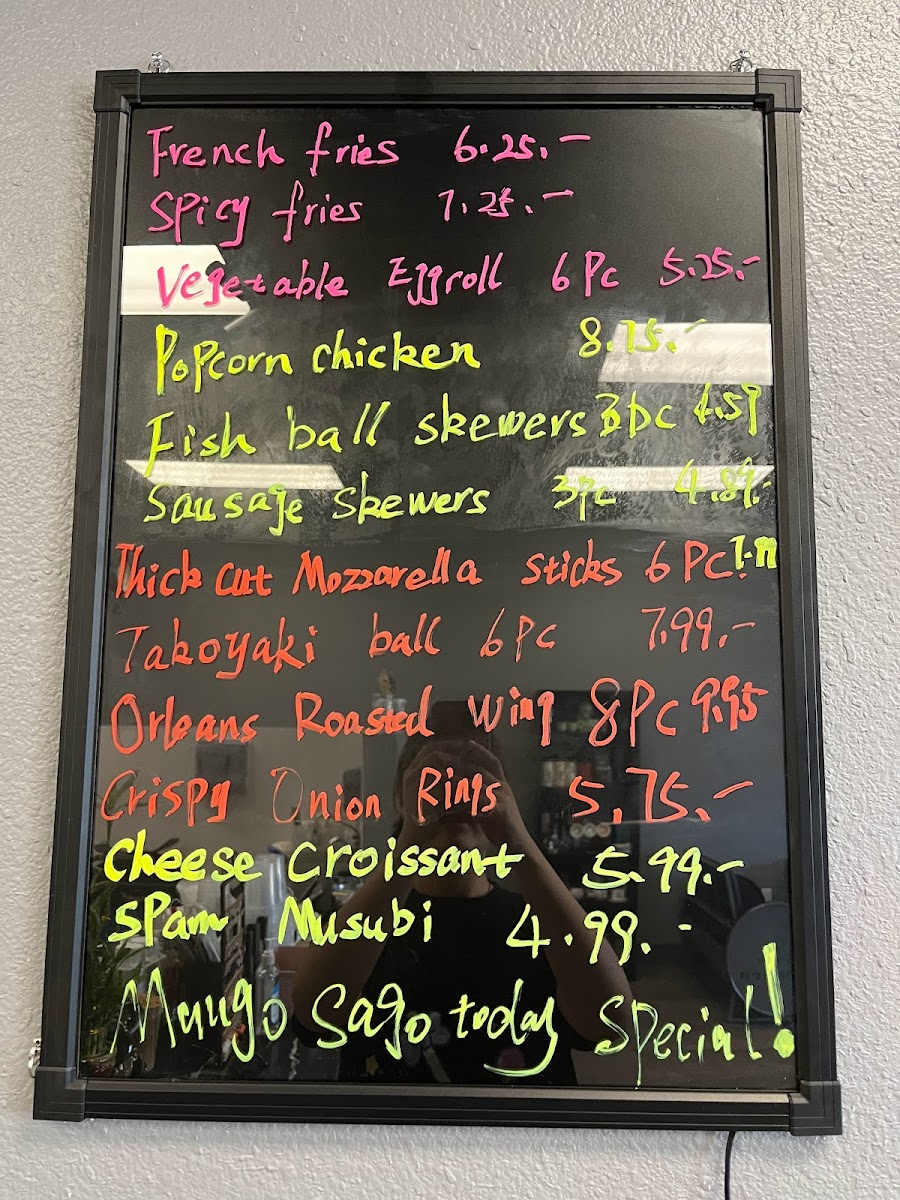 French fries 6.25.-
Spicy fries 7.25.-
Vegetable Eggroll 6 Pc 5.25.-
Popcorn chicken 8.75.-
Fish ball skewers 3pc 4.59
Sausage skewers 3pc 4.89.-
Thick cut Mozzarella sticks 6 Pc
Takoyaki ball 6 pc 7.99.-
Orleans Roasted Wing 8 Pc 9.95
Crispy Onion Rings 5.75.-
Cheese Croissant 5.99.-
Spam Musubi 4.99.-
Mango Sago today Special!